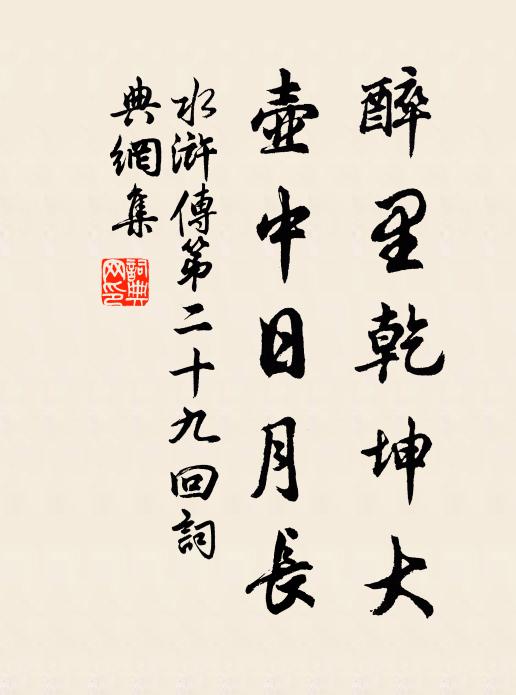 醉里乾坤大
壺中日月長
水滸傳第二十九回詞
典網集
詞典
网印